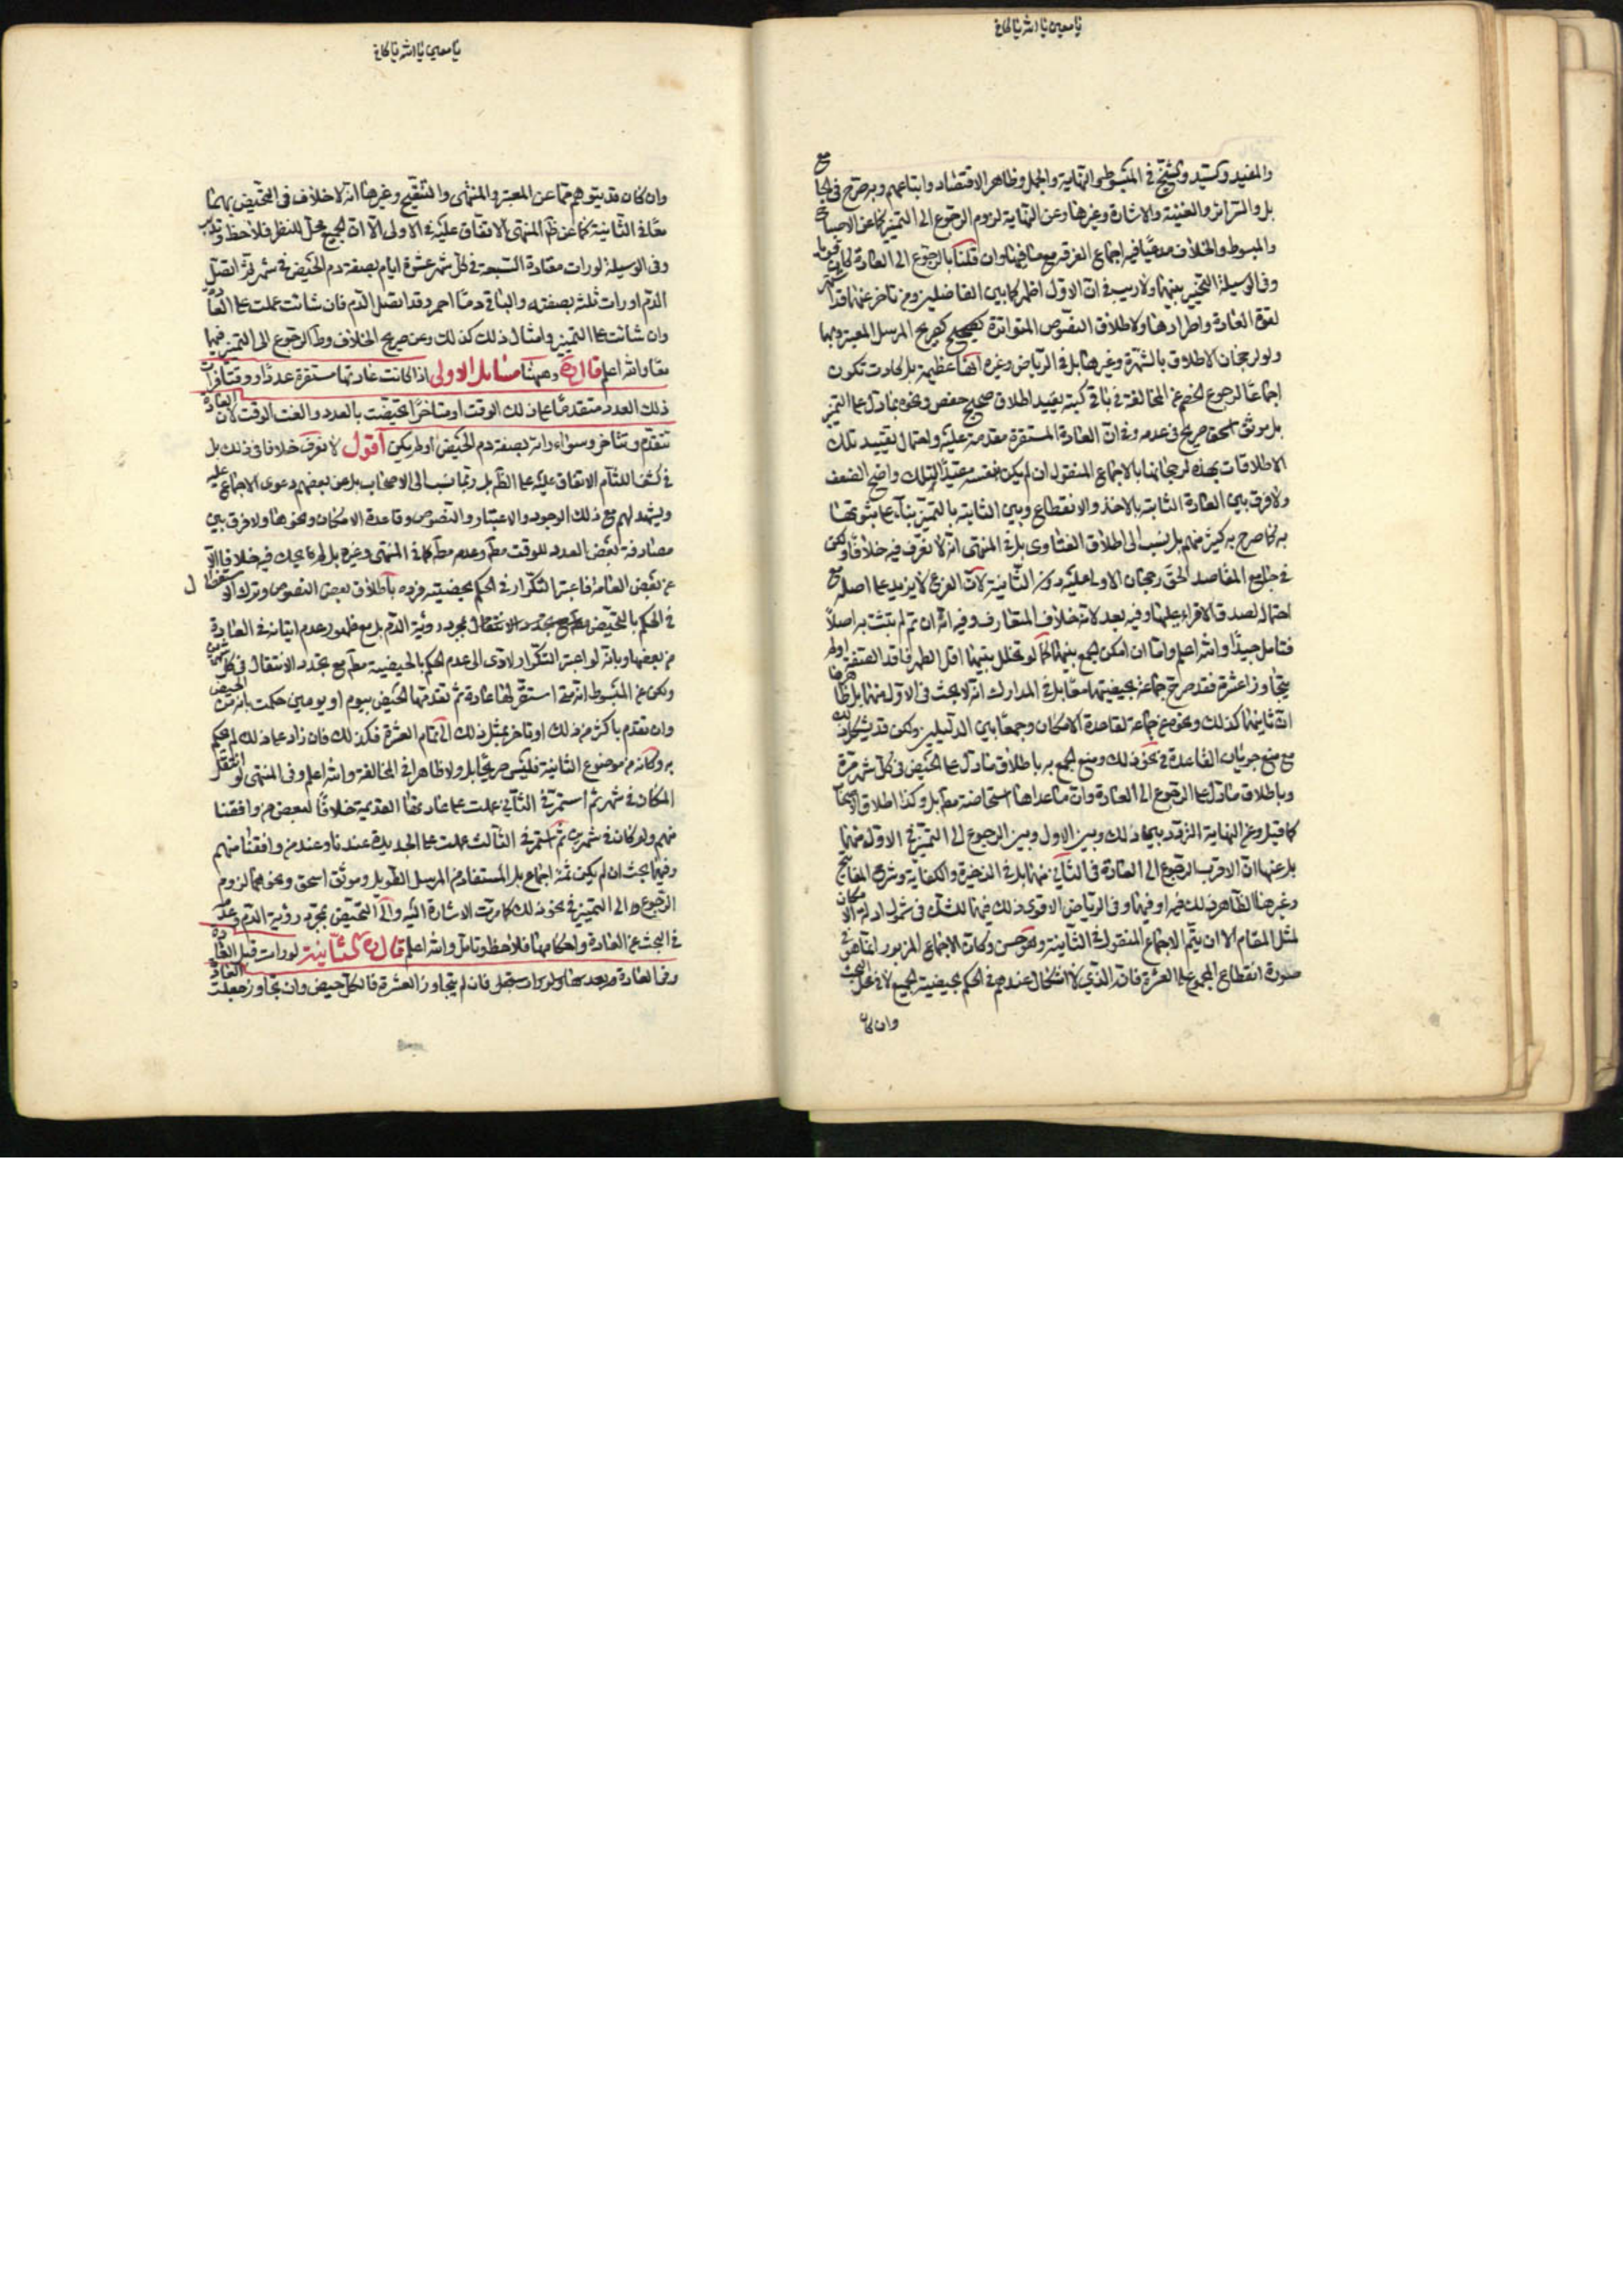 يا معين يا الله يا كافي
والمفيد والسيد والشيخ في المبسوط والنهاية والجمل وظاهر الاقتصاد واتباعهم وبه صرح في الجامع
بل والسرائر والغنية والاشارة وغيرها وعن النهاية لزوم الرجوع الى التميز كما عن الاصباح
والمبسوط والخلاف مدعيا فيه اجماع الفرقة مع وان قلنا بالرجوع الى العادة لكان قويا
وفي الوسيلة التخيير بينهما ولا ريب في ان الاول اظهر كما بين الفاضلين ومن تاخر عنهما
لقوة العادة واطرادها ولاطلاق النصوص المتواترة كصريح المرسل المعتبرة بها
ولو لرجحان الاطلاق بالشهرة وغيرها بل في الرياض وغيره انها عظيمة بل كادت تكون
اجماعا لرجوع الخصم عن المخالفة في باقي كتبه تقييد اطلاق صحيح حفص ونحوه مما دل على التميز
بل موثق اسحق صريح في عدمه وفي ان العادة المستقرة مقدمة عليه واحتمال تقييد تلك
الاطلاقات بهذه لرجحانها بالاجماع المنقول ان لم يكن نفسه مقيدا لتلك واضح الضعف
ولا فرق بين العادة الثابتة بالاخذ والانقطاع وبين الثابتة بالتميز بناء على ثبوتها
به كما صرح به كثير منهم بل نسب الى اطلاق الفتاوى بل في المنتهى انه لا نعرف فيه خلافا ولكن
في جامع المقاصد الحق رجحان الاولى عليه دون الثانية لان الفرع لا يزيد على اصله مع
احتمال صدق الاقراء عليها وفيه بعد لانه خلاف المتعارف وفيه انه ان تم لم يثبت به اصلا
فتامل جيدا والله اعلم واما ان امكن الجمع بينهما كما لو تخلل بينهما اقل الطهر فاقد الصفة اولم
يتجاوز العشرة فقد صرح جماعة بحيضيتهما معا بل في المدارك انه لا بحث في الاول منهما بل
ان ثانيهما كذلك ونحوه عن جماعة لقاعدة الامكان وجمعا بين الدليلين ولكن قد يشكل ذلك
مع منع جريان القاعدة في نحو ذلك ومنع الجمع به باطلاق ما دل على الحيض في كل شهر مرة
وباطلاق ما دل على الرجوع الى العادة وان ما عداها استحاضة مطم بل وكذا اطلاق الاصحاب
كما قيل وعن النهاية التردد بين ذلك وبين الاول وبين الرجوع الى التميز في الاول منهما
بل عنها ان الاقرب الرجوع الى العادة في الثاني منهما بل في الذخيرة والكفاية وشرح المفاتيح
وغيرها الظاهر ذلك فيه او فيهما وفي الرياض الاقوى ذلك فيهما للشك في شمول ادلة الامكان
لمثل المقام الا ان يتم الاجماع المنقول في الثانية وهو حسن وكان الاجماع المزبور انما هو في
صورة انقطاع المجموع على العشرة فان الذي لا اشكال عندهم في الحكم بحيضية الجميع لا في محل البحث
وان كان
يا معين يا الله يا كافي
وان كان قد يتوهم مما عن المعتبر والمنتهى والتنقيح وغيرها انه لا خلاف في التحيض بهما
معا في الثانية كما عن ظم المنتهى الاتفاق عليه في الاولى الا ان الجميع محل للنظر فلاحظ وتدبر
وفي الوسيلة لو رات معتادة السبعة في كل شهر عشرة ايام بصفة دم الحيض في شهر ثم اتصل
الدم او رات ثلثة بصفته والباقي دما احمر وقد اتصل الدم فان شائت عملت على العادة
وان شائت على التميز وامثال ذلك كذلك وعن صريح الخلاف وط الرجوع الى التميز فيهما
معا والله اعلم قال ره وههنا مسائل الاولى اذا كانت عادتها مستقرة عددا ووقتا فرات
ذلك العدد متقدما على ذلك الوقت او متاخرا تحيضت بالعدد والغت الوقت لان العادة
تتقدم وتتاخر وسواء راته بصفة دم الحيض او لم يكن اقول لا نعرف خلافا في ذلك بل
في كشف اللثام الاتفاق عليه على الظم بل ربما نسب الى الاصحاب بل عن بعضهم دعوى الاجماع عليه
ويشهد لهم مع ذلك الوجود والاعتبار والنصوص وقاعدة الامكان ونحوها ولا فرق بين
مصادفة بعض العدد للوقت مطم وعدمه مطم كما في المنتهى وغيره بل لم يحك فيه خلافا الا
عن بعض العامة فاعتبر التكرار في الحكم بحيضيته فرده باطلاق بعض النصوص وترك الاستفصال
في الحكم بالتحيض بمجرد رؤية الدم بل مع ظهور عدم اتيانه في العادة
من بعضها وبانه لو اعتبر التكرار لادى الى عدم الحكم بالحيضية مطم مع تجدد الانتقال في كل شهر
ولكن عن المبسوط انه متى استقر لها عادة ثم تقدمها الحيض بيوم او يومين حكمت بانه من الحيض
وان تقدم باكثر من ذلك او تاخر بمثل ذلك الى تمام العشرة فكذلك فان زاد على ذلك لم يحكم
به وكانه من موضوع الثانية فليس صريحا بل ولا ظاهرا في المخالفة والله اعلم وفي المنتهى لو انتقل
المكان في شهر ثم استمر في الثاني عملت على عادتها القديمة خلافا لبعض من وافقنا
منهم ولو كان في شهرين ثم استمر في الثالث عملت على الجديدة عندنا وعند من وافقنا منهم
وفيهما بحث ان لم يكن ثمة اجماع بل المستفاد من المرسل الطويل وموثق اسحق ونحوهما لزوم
الرجوع الى التميز في نحو ذلك كما مرت الاشارة اليه والى التحيض بمجرد رؤية الدم وعدمه
في البحث عن العادة واحكامها فلاحظ وتامل والله اعلم قال ره الثانية لو رات قبل العادة
وفي العادة وبعدها فان لم يتجاوز العشرة فالكل حيض وان تجاوز جعلت العادة